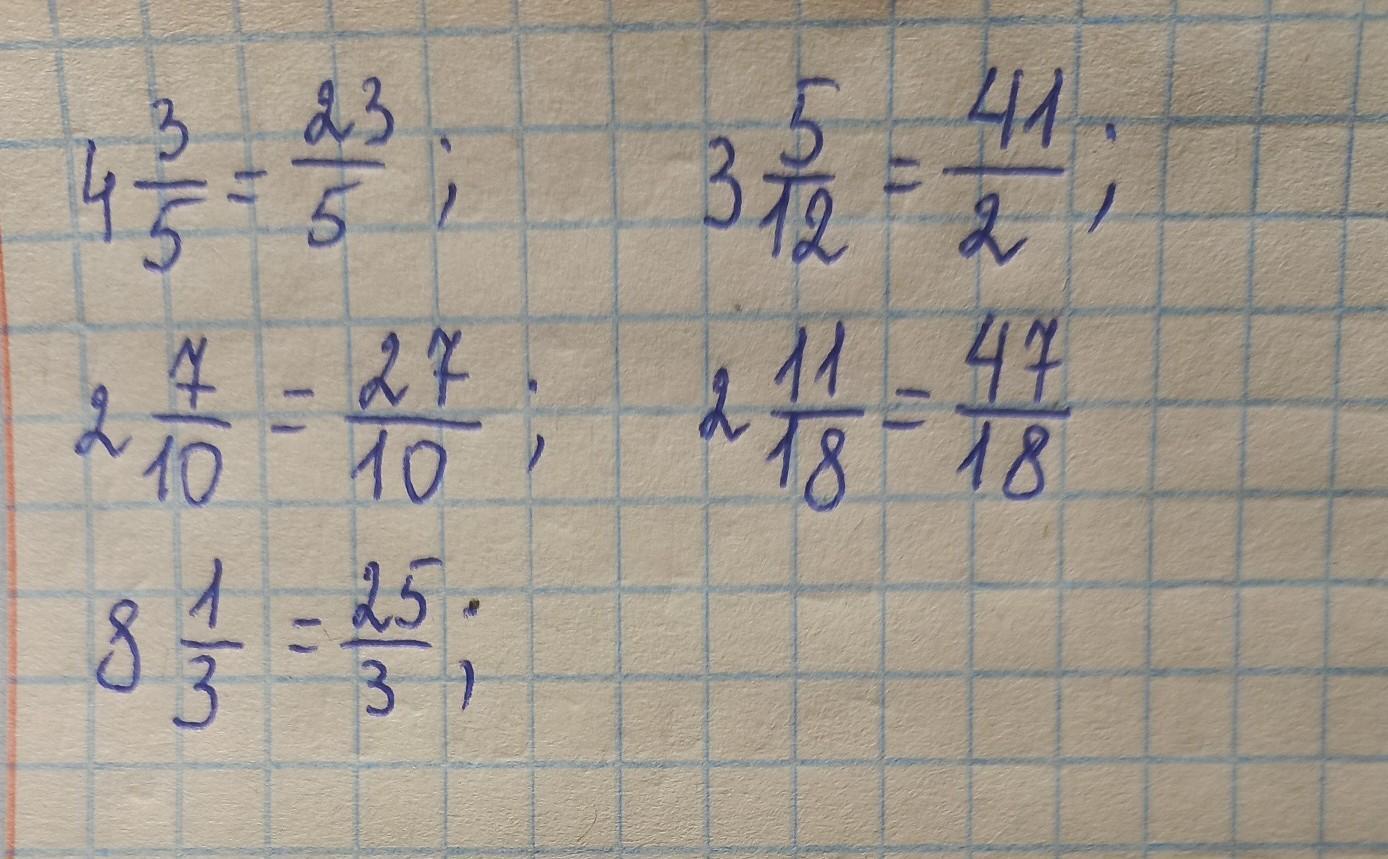 4 3/5 = 23/5 ; 3 5/12 = 41/2 ;
2 7/10 = 27/10 ; 2 11/18 = 47/18
8 1/3 = 25/3 ;